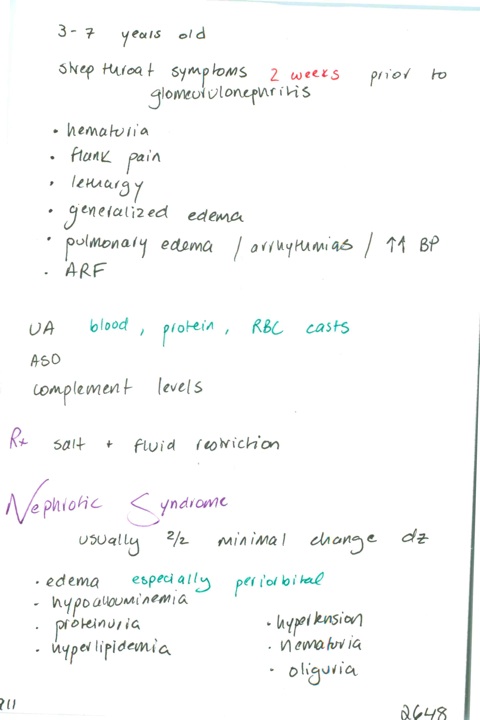 3-7 years old
strep throat symptoms 2 weeks prior to
glomerulonephritis
• hematuria
• flank pain
• lethargy
• generalized edema
• pulmonary edema / arrhythmias / ↑↑ BP
• ARF
UA blood, protein, RBC casts
ASO
complement levels
Rx salt + fluid restriction
Nephrotic Syndrome
usually 2/2 minimal change dz
• edema especially periorbital
• hypoalbuminemia
• proteinuria
• hyperlipidemia
• hypertension
• hematuria
• oliguria
2648